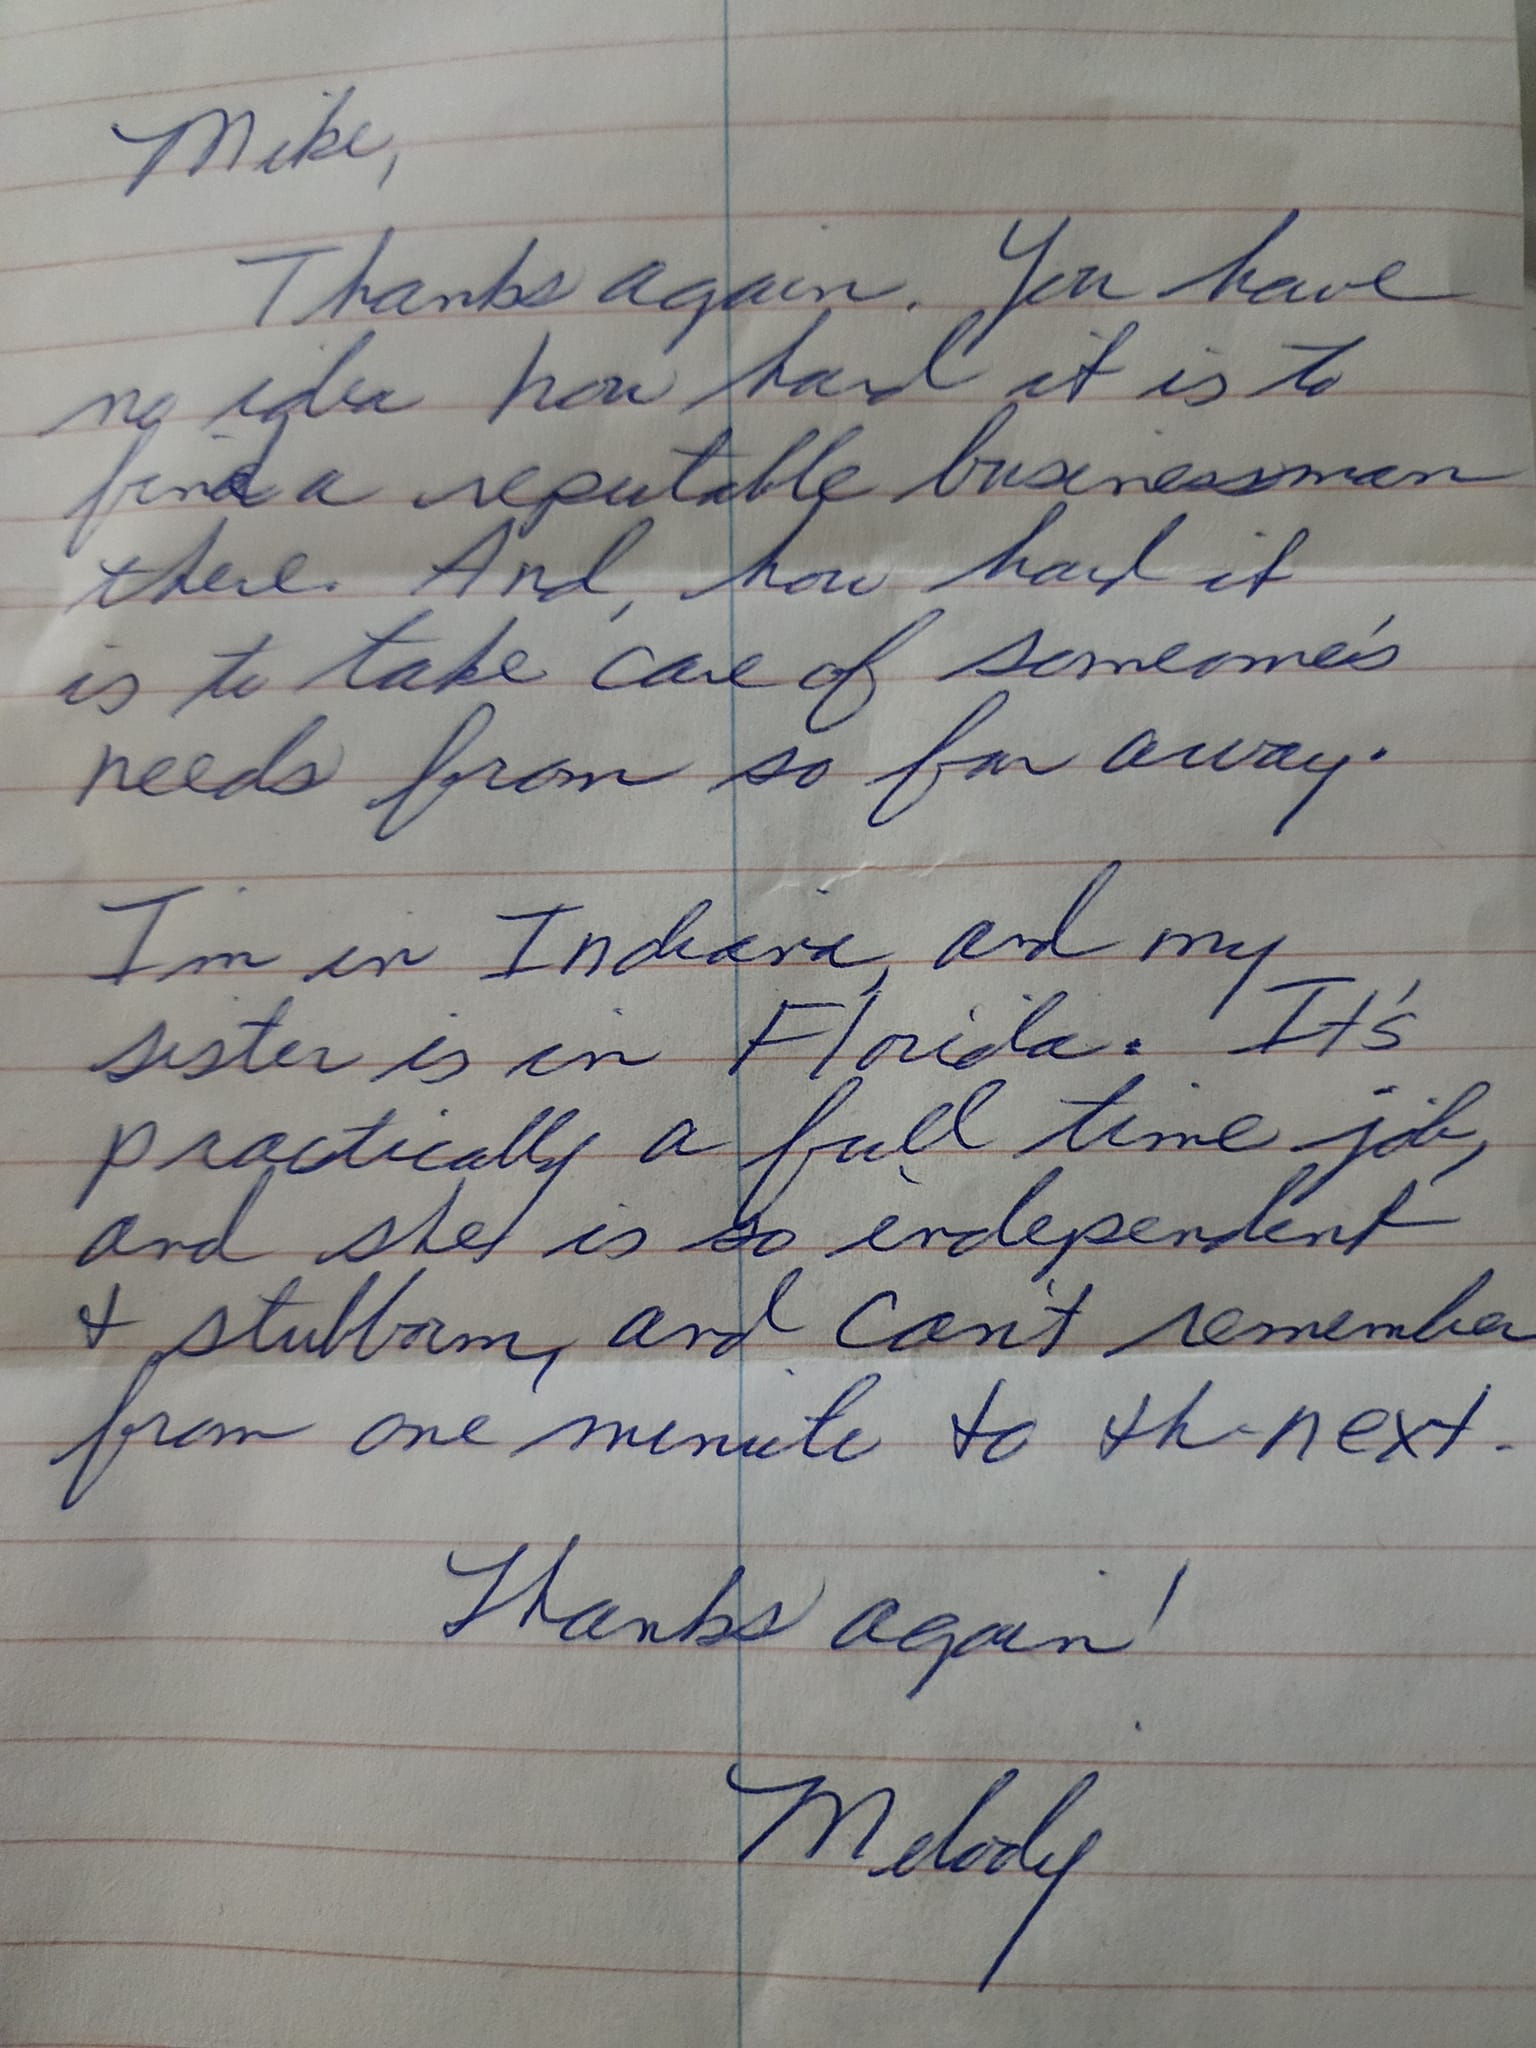 Mike,
Thanks again. You have
no idea how hard it is to
find a reputable businessman
there. And, how hard it
is to take care of someone's
needs from so far away.
I'm in Indiana, and my
sister is in Florida. It's
practically a full time job,
and she is so independent
& stubborn, and can't remember
from one minute to the next.
Thanks again!
Melody